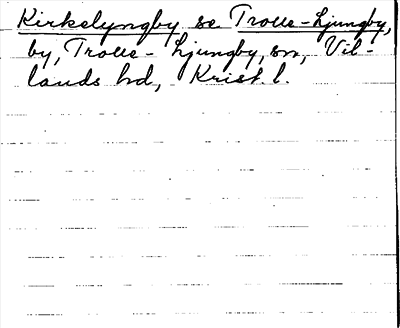 Kirkelyngby se Trolle-Ljungby,
by, Trolle-Ljungby, sn, Vil-
lands hd, Krist. l.